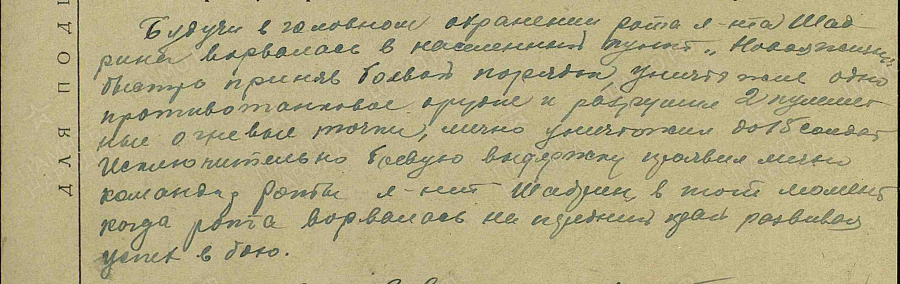 Будучи в головном охранении рота л-нта Шад
рина ворвалась в населенный пункт „Новая
быстро приняв боевой порядок, уничтожил одно
противотанковое орудие и разрушил 2 пулемет
ные огневые точки, лично уничтожил до 15 солдат
Исключительно боевую выдержку проявил лично
командир роты л-нит Шадрин, в тот момент
когда рота ворвалась на передний край развивая
успех в бою.
ДЛЯ ПОД